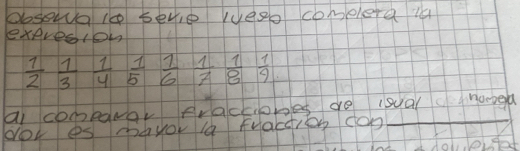 observa la serie luego completa la
expresion
1/2 1/3 1/4 1/5 1/6 1/7 1/8 1/9
al comparar fracciones de igual
dor es mayor la fracción con ________